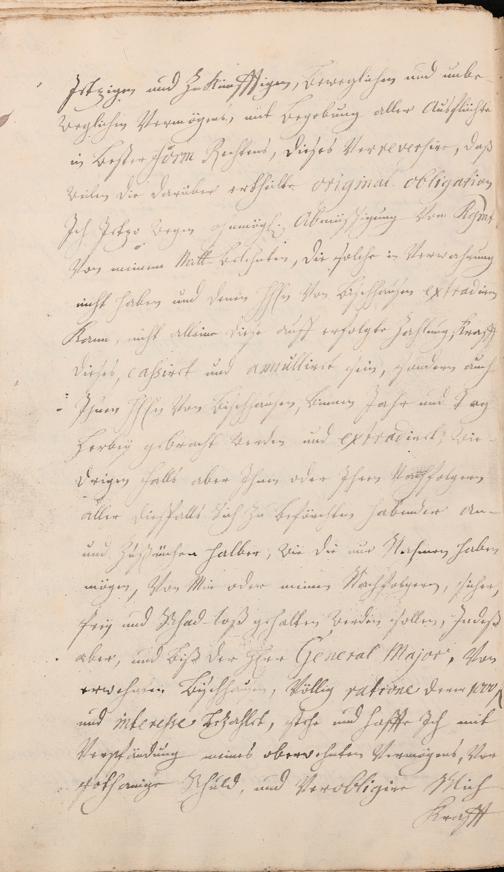 Jetzigen und Zukünfftigen, beweglichen und unbe-
weglichen Vermögens, mit Begebung aller Ausflüchte
in bester Form Rechtens, dieses Verreversire, daß
weilen die darüber erhaltene original obligation
Ich jetzo wegen Abmüssigung vom
von meinem die solche in Verwahrung
nicht haben und denen HEn von Bischhausen extradiren
kann, nicht alleine diese auff erfolgte Zahlung, Krafft
dieses, cassiret und annulliret sein, sondern auch
Ihnen HEn von Bischhausen, binnen Jahr und Tag
herbey gebracht werden und extradiret; wie-
drigen falls aber Ihnen oder Ihren Nachfolgern
aller dießfalls Sich zu befürchten habender an-
und Zusprüchen halber, wie die nur Nahmen haben
mögen, von Mir oder meinen Nachfolgern, sicher,
frey und Schad-loß gehalten werden sollen, Indeß
aber, und biß der Herr General Major, von
erwehnten Bischhausen, völlig ratione derer 1000
und interesse bezahlet, stehe und haffte Ich mit
Verpfändung meines oberwehnten Vermögens, vor
sothanige Schuld, und Verobligire Mich
Krafft